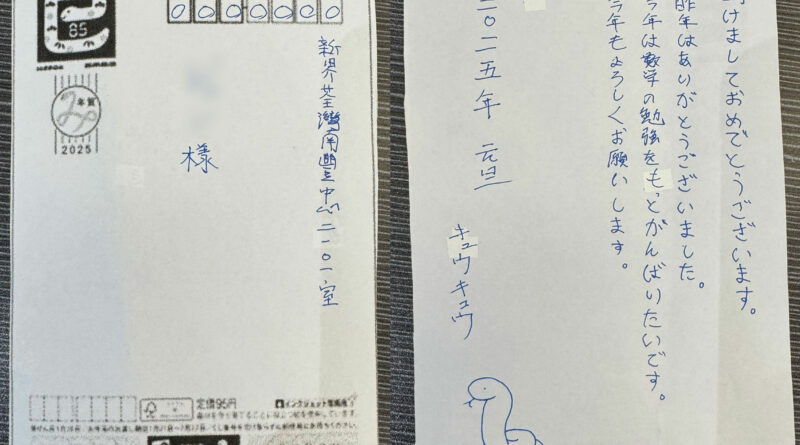 85
0000000
新界荃灣南豐中心二一〇一室
様
年賀
2025
定価95円
けましておめでとうございます。
昨年はありがとうございました。
今年は数学の勉強をもっとがんばりたいです。
今年もよろしくお願いします。
二〇二五年 元旦
キュウキュウ